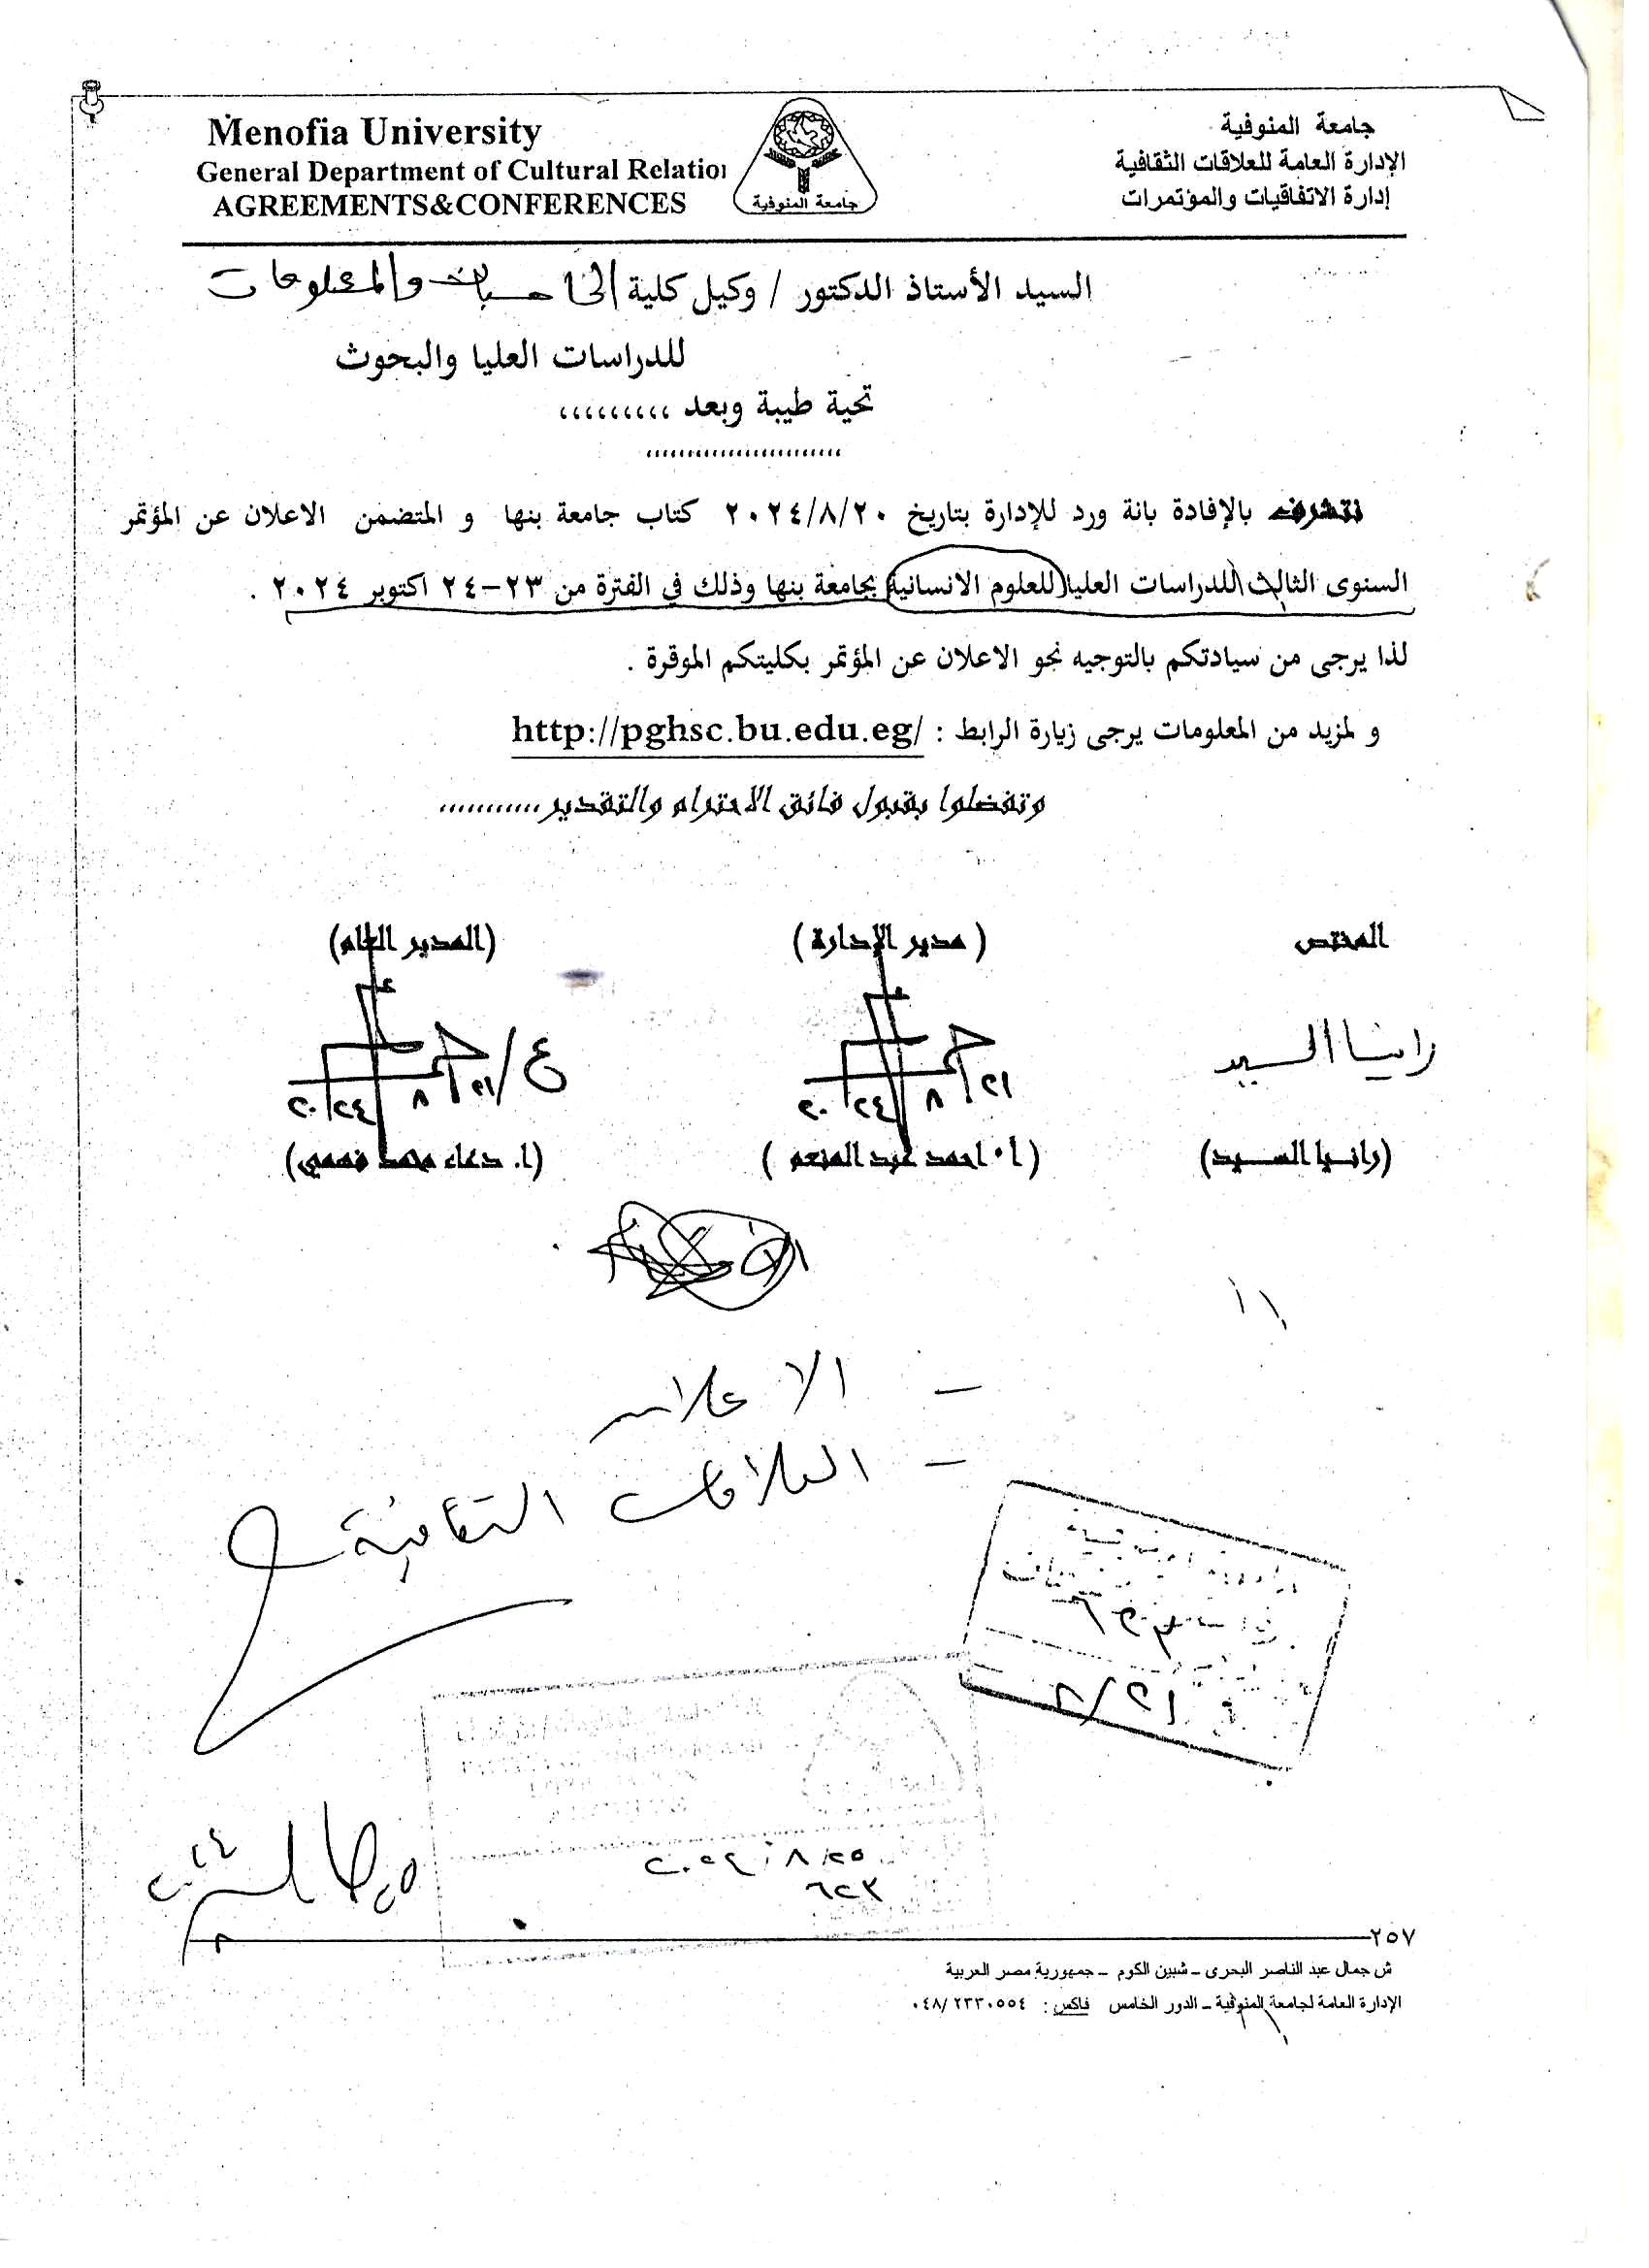 Menofia University
General Department of Cultural Relation
AGREEMENTS&CONFERENCES
جامعة المنوفية
جامعة المنوفية
الإدارة العامة للعلاقات الثقافية
إدارة الاتفاقيات والمؤتمرات
السيد الأستاذ الدكتور / وكيل كلية الحاسبات والمعلومات
للدراسات العليا والبحوث
تحية طيبة وبعد ،،،،،،،،،
،،،،،،،،،،،،،،،،،،،،،،،
نتشرف بالإفادة بانة ورد للإدارة بتاريخ ٢٠٢٤/٨/٢٠ كتاب جامعة بنها و المتضمن الاعلان عن المؤتمر
السنوى الثالث للدراسات العليا للعلوم الانسانية بجامعة بنها وذلك في الفترة من ٢٣-٢٤ اكتوبر ٢٠٢٤ .
لذا يرجى من سيادتكم بالتوجيه نحو الاعلان عن المؤتمر بكليتكم الموقرة .
و لمزيد من المعلومات يرجى زيارة الرابط : http://pghsc.bu.edu.eg/
وتفضلوا بقبول فائق الاحترام والتقدير،،،،،،،،،،،
المختص
( مدير الإدارة )
(المدير العام)
رانيا السيد
٢١ / ٨ / ٢٠٢٤
ع / ٢١ / ٨ / ٢٠٢٤
(رانيا السيد)
( أ . احمد عبد المنعم )
(ا. دعاء محمد فهمي)
- الاعلان
- العلاقات الثقافية
٢٠٢٤ ٨ ٢٥
٦٢٣
٢٥٧
ش جمال عبد الناصر البحرى - شبين الكوم - جمهورية مصر العربية
الإدارة العامة لجامعة المنوفية - الدور الخامس فاكس : ٠٤٨/٢٣٣٠٥٥٤